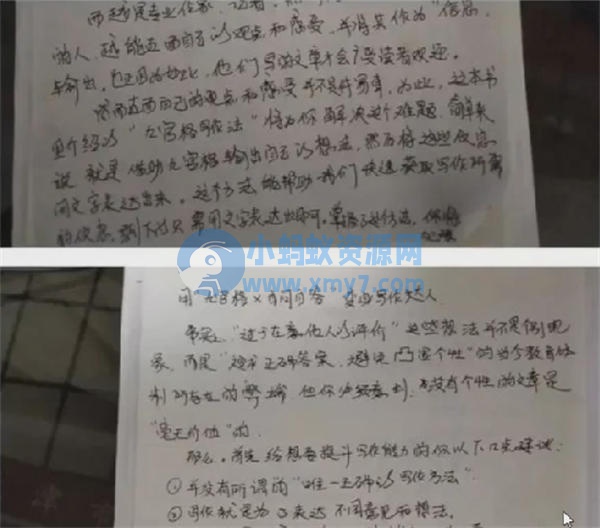 而越是专业作家、记者
的人,越能直面自己的观点和感受,并将其作为“信息”
与输出,也正因为如此,他们写的文章才会广受读者欢迎。
然而直面自己的观点和感受并不是件易事,为此,这本书
里介绍的“九宫格写作法”将为你解决这个难题.简单来
说 就是借助九宫格输出自己的想法,然后将这些信息
用文字表达出来。这个方法能帮助我们快速获取写作所需
的信息.剩下的只需用文字表达出即可.掌握了这个方法,你将
小蚂蚁资源网
www.xmy7.com
用九宫格×自问自答 变身写作达人
事实上“过于在意他人的评价”这些想法并不是个别现
象,而是“追求正确答案、避免凸显个性”的当今教育体
制所存在的弊端 但你必须意识到,没有个性的文章是
“毫无价值”的.
那么,首先给想要提升写作能力的你以下口点建议:
①并没有所谓的“唯一正确的写作方法”
②写作就是为了表达不同意见和想法。